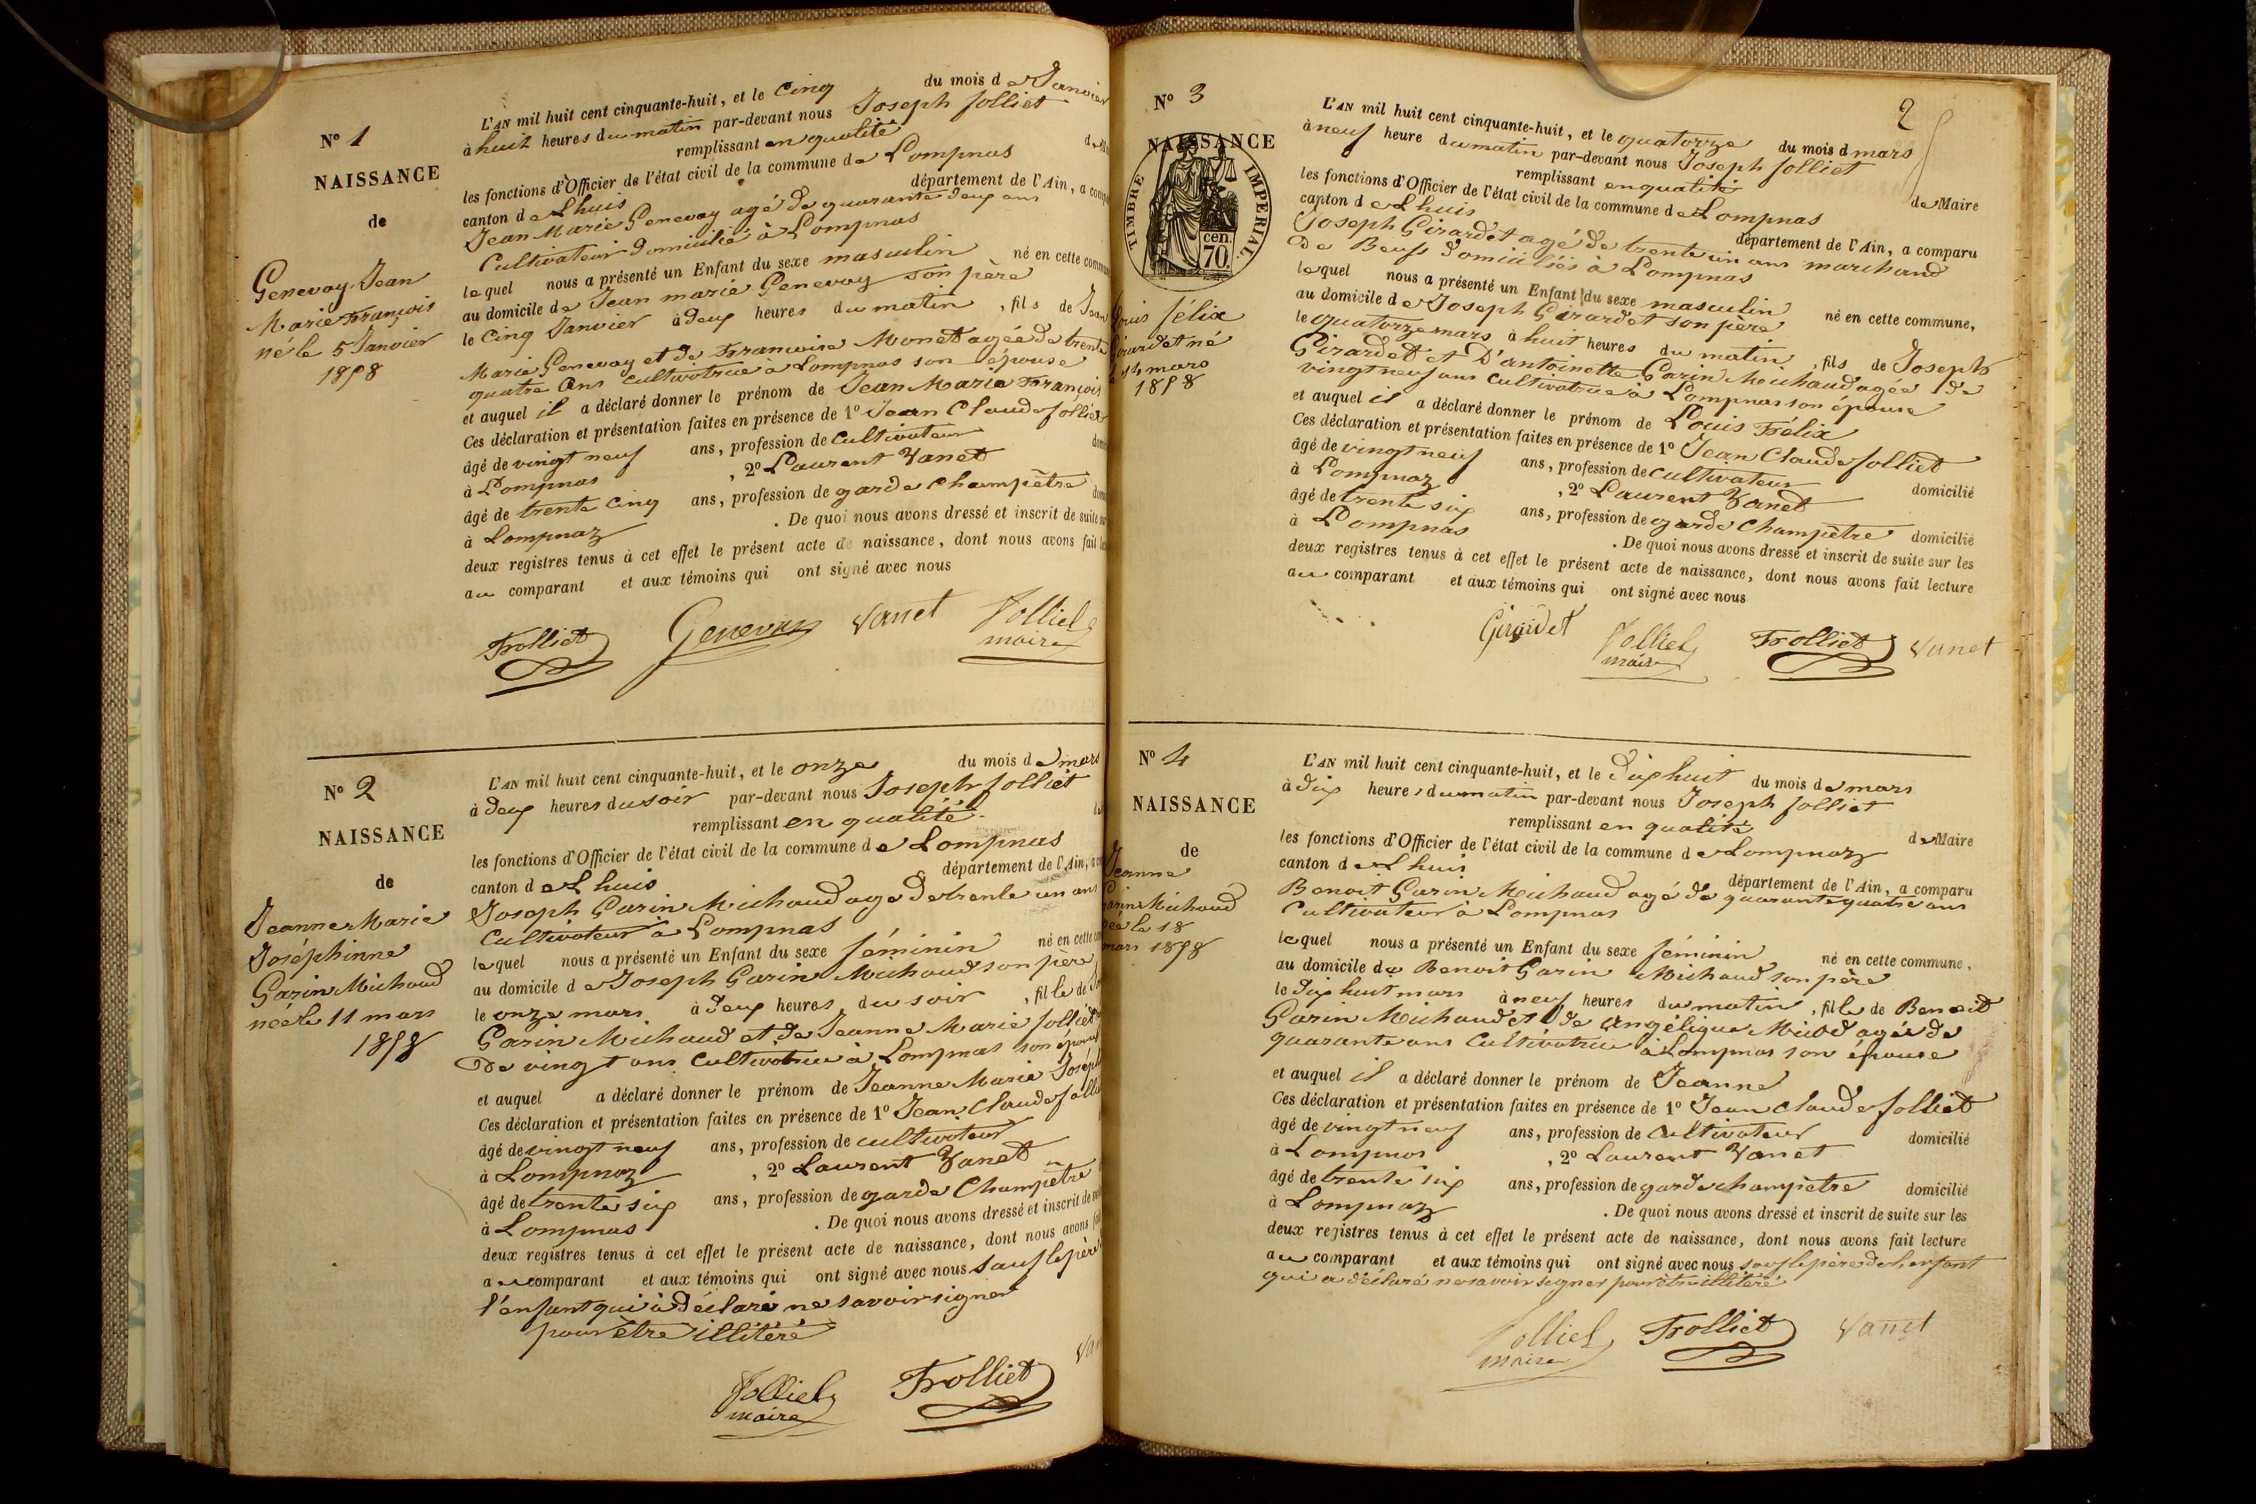 N° 1
NAISSANCE
de
Genevay Jean
Marie François
né le 5 Janvier
1858
L'AN mil huit cent cinquante-huit, et le Cinq du mois de Janvier
à huit heures du matin par-devant nous Joseph Jolliet
remplissant en qualité de
les fonctions d'Officier de l'état civil de la commune de Lompnas
canton de Lhuis département de l'Ain, a
Jean Marie Genevay agé de quarante deux ans
Cultivateur domicilié à Lompnas
lequel nous a présenté un Enfant du sexe masculin né en cette
au domicile de Jean marie Genevay son père
le Cinq Janvier à deux heures du matin, fils de Jean
Marie Genevay et de Françoise Monet agée de trente
quatre ans cultivatrice à Lompnas son épouse
et auquel il a déclaré donner le prénom de Jean Marie François
Ces déclaration et présentation faites en présence de 1° Jean Claude Jolliet
âgé de vingt neuf ans, profession de cultivateur
à Lompnas, 2° Laurent Vanet
âgé de trente cinq ans, profession de garde Champêtre
à Lompnaz. De quoi nous avons dressé et inscrit de suite
deux registres tenus à cet effet le présent acte de naissance, dont nous avons fait
au comparant et aux témoins qui ont signé avec nous
Trolliet Genevay Vanet Jolliet
maire
N° 2
NAISSANCE
de
Jeanne Marie
Joséphinne
Garin Michaud
née le 11 mars
1858
L'AN mil huit cent cinquante-huit, et le onze du mois de mars
à deux heures du soir par-devant nous Joseph Jolliet
remplissant en qualité
les fonctions d'Officier de l'état civil de la commune de Lompnas
canton de Lhuis département de l'Ain,
Joseph Garin Michaud agé de trente un ans
Cultivateur à Lompnas
lequel nous a présenté un Enfant du sexe féminin né en cette
au domicile de Joseph Garin Michaud son père
le onze mars à deux heures du soir, fille de
Garin Michaud et de Jeanne Marie Jolliet
de vingt ans cultivatrice à Lompnas son épouse
et auquel a déclaré donner le prénom de Jeanne Marie
Ces déclaration et présentation faites en présence de 1° Jean Claude
âgé de vingt neuf ans, profession de cultivateur
à Lompnaz, 2° Laurent Vanet
âgé de trente six ans, profession de garde Champêtre
à Lompnas. De quoi nous avons dressé et inscrit de
deux registres tenus à cet effet le présent acte de naissance, dont nous avons
au comparant et aux témoins qui ont signé avec nous sauf le père
l'enfant qui à déclaré ne savoir signer
pour être illitéré
Jolliet Trolliet
maire
2
N° 3
NAISSANCE
TIMBRE IMPERIAL.
cen.
70.
Louis félix
Girardet né
le 14 mars
1858
L'AN mil huit cent cinquante-huit, et le quatorze du mois d mars
à neuf heure du matin par-devant nous Joseph Jolliet
remplissant en qualité de Maire
les fonctions d'Officier de l'état civil de la commune de Lompnas
canton de Lhuis département de l'Ain, a comparu
Joseph Girardet agé de trente un ans marchand
de Beufs domicilié à Lompnas
lequel nous a présenté un Enfant du sexe masculin né en cette commune,
au domicile de Joseph Girardet son père
le quatorze mars à huit heures du matin, fils de Joseph
Girardet et D'antoinette Garin Michaud agée de
vingt neuf ans cultivatrice à Lompnas son épouse
et auquel il a déclaré donner le prénom de Louis Felix
Ces déclaration et présentation faites en présence de 1° Jean Claude Jolliet
âgé de vingt neuf ans, profession de cultivateur domicilié
à Lompnaz, 2° Laurent Vanet
âgé de trente six ans, profession de garde Champêtre domicilié
à Lompnas. De quoi nous avons dressé et inscrit de suite sur les
deux registres tenus à cet effet le présent acte de naissance, dont nous avons fait lecture
au comparant et aux témoins qui ont signé avec nous
Girardet Jolliet Trolliet Vanet
maire
N° 4
NAISSANCE
de
Jeanne
Garin Michaud
née le 18
mars 1858
L'AN mil huit cent cinquante-huit, et le dix huit du mois de mars
à dix heures du matin par-devant nous Joseph Jolliet
remplissant en qualité de Maire
les fonctions d'Officier de l'état civil de la commune de Lompnaz
canton de Lhuis département de l'Ain, a comparu
Benoit Garin Michaud agé de quarante quatre ans
Cultivateur à Lompnas
lequel nous a présenté un Enfant du sexe féminin né en cette commune,
au domicile de Benoit Garin Michaud son père
le dix huit mars à neuf heures du matin, fille de Benoit
Garin Michaud et de Angélique Micod agée de
quarante ans Cultivatrice à Lompnas son épouse
et auquel il a déclaré donner le prénom de Jeanne
Ces déclaration et présentation faites en présence de 1° Jean Claude Jolliet
âgé de vingt neuf ans, profession de Cultivateur domicilié
à Lompnas, 2° Laurent Vanet
âgé de trente six ans, profession de garde champêtre domicilié
à Lompnaz. De quoi nous avons dressé et inscrit de suite sur les
deux registres tenus à cet effet le présent acte de naissance, dont nous avons fait lecture
au comparant et aux témoins qui ont signé avec nous sauf le père de l'enfant
qui a déclaré ne savoir signer pour être illitéré
Jolliet Trolliet Vanet
maire